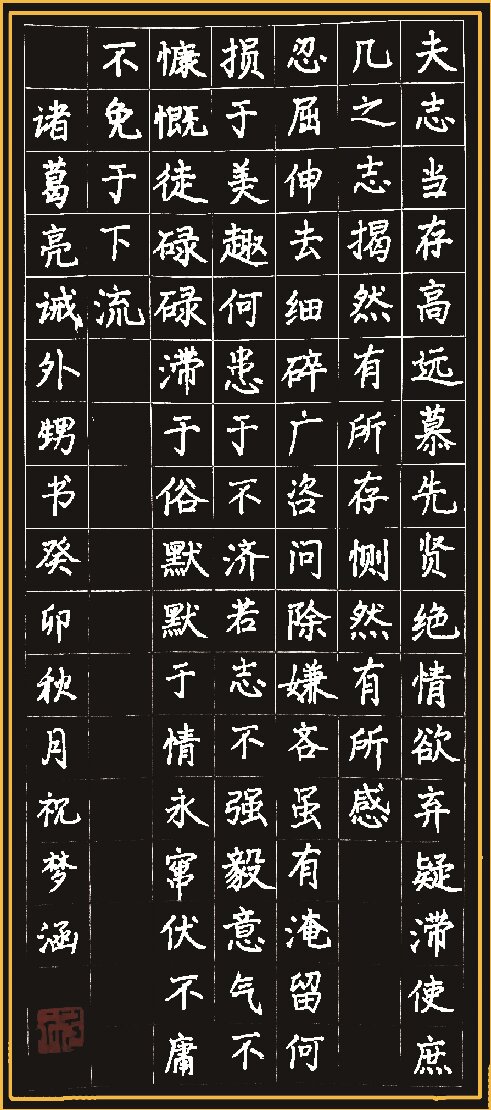 夫志当存高远慕先贤绝情欲弃疑滞使庶
几之志揭然有所存恻然有所感
忍屈伸去细碎广咨问除嫌吝虽有淹留何
损于美趣何患于不济若志不强毅意气不
慷慨徒碌碌滞于俗默默于情永窜伏不庸
不免于下流
诸葛亮诫外甥书癸卯秋月祝梦涵